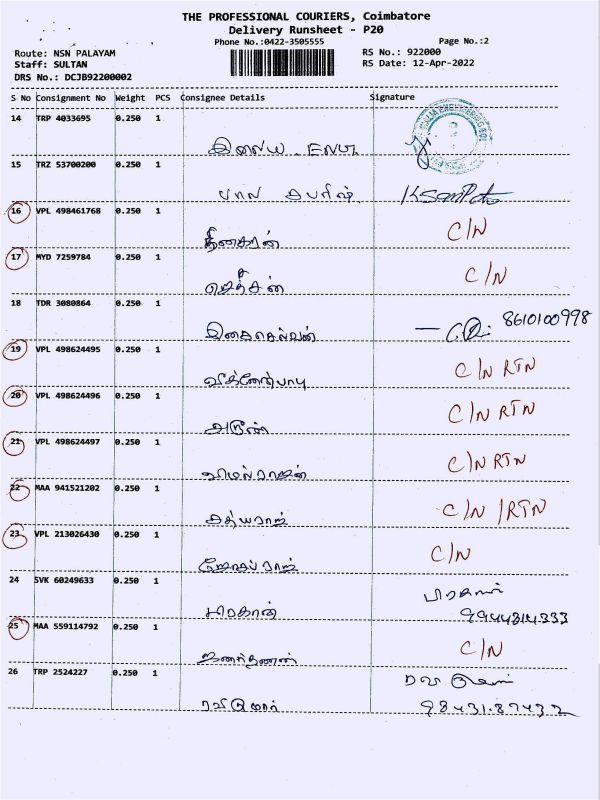 THE PROFESSIONAL COURIERS, Coimbatore
Delivery Runsheet - P20
Phone No.:0422-3505555 Page No.:2
Route: NSN PALAYAM RS No.: 922000
Staff: SULTAN RS Date: 12-Apr-2022
DRS No.: DCJB92200002
S No Consignment No Weight PCS Consignee Details Signature
14 TRP 4033695 0.250 1
இலைய
15 TRZ 53700200 0.250 1
பால சுபரிஷ்
16 VPL 498461768 0.250 1 C/N
தினகரன்
17 MYD 7259784 0.250 1 C/N
ஜெச்சின்
18 TDR 3080864 0.250 1 8610100998
இசைசெல்வன்
19 VPL 498624495 0.250 1 C/N RTN
விக்னேஷ்பாபு
20 VPL 498624496 0.250 1 C/N RTN
அருண்
21 VPL 498624497 0.250 1 C/N RTN
விமல்ராஜன்
22 MAA 941521202 0.250 1 C/N /RTN
சத்யராஜ்
23 VPL 213026430 0.250 1 C/N
ஜோஸப்ராஜ்
24 SVK 60249633 0.250 1
பிரகாஷ் 9944814333
25 MAA 559114792 0.250 1 C/N
ஜனார்தனன்
26 TRP 2524227 0.250 1
ரவிகுமார் 98431.87432